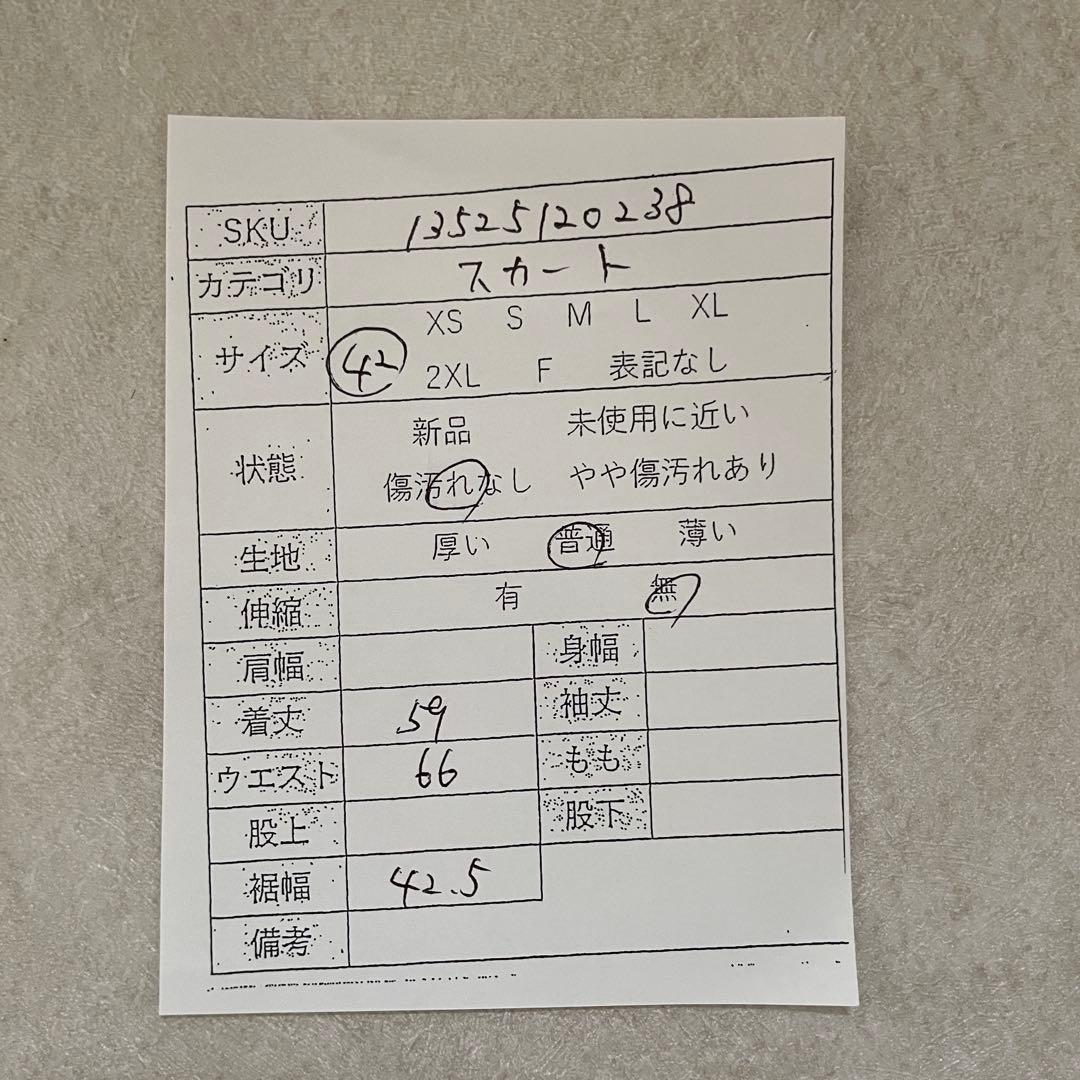 SKU 13525120238
カテゴリ スカート
サイズ 42 XS S M L XL
2XL F 表記なし
状態 新品 未使用に近い
傷汚れなし やや傷汚れあり
生地 厚い 普通 薄い
伸縮 有 無
肩幅 身幅
着丈 59 袖丈
ウエスト 66 もも
股上 股下
裾幅 42.5
備考